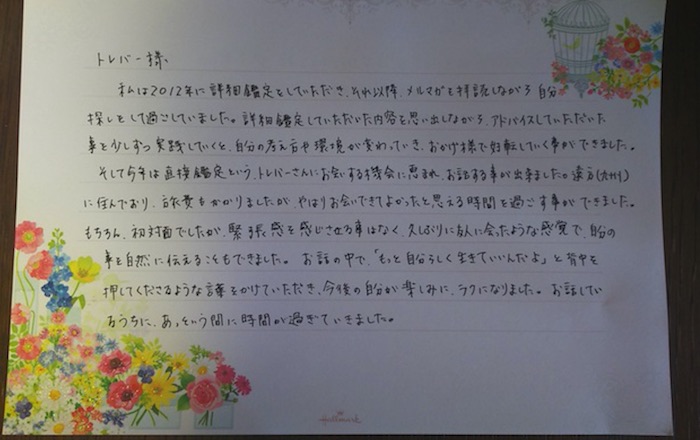 トレバー様、
私は2012年に詳細鑑定をしていただき、それ以降、メルマガを拝読しながら自分
探しをして過ごしていました。詳細鑑定していただいた内容を思い出しながら、アドバイスしていただいた
事を少しずつ実践していくと、自分の考え方や環境が変わっていき、おかげ様で好転していく事ができました。
そして今年は直接鑑定という、トレバーさんにお会いする機会に恵まれ、お話する事が出来ました。遠方(九州)
に住んでおり、旅費もかかりましたが、やはりお会いできてよかったと思える時間を過ごす事ができました。
もちろん、初対面でしたが、緊張感を感じさせる事はなく、久しぶりに友人に会ったような感覚で、自分の
事を自然に伝えることもできました。お話の中で、「もっと自分らしく生きていいんだよ」と背中を
押してくださるような言葉をかけていただき、今後の自分が楽しみに、ラクになりました。お話してい
るうちに、あっという間に時間が過ぎていきました。
Hallmark